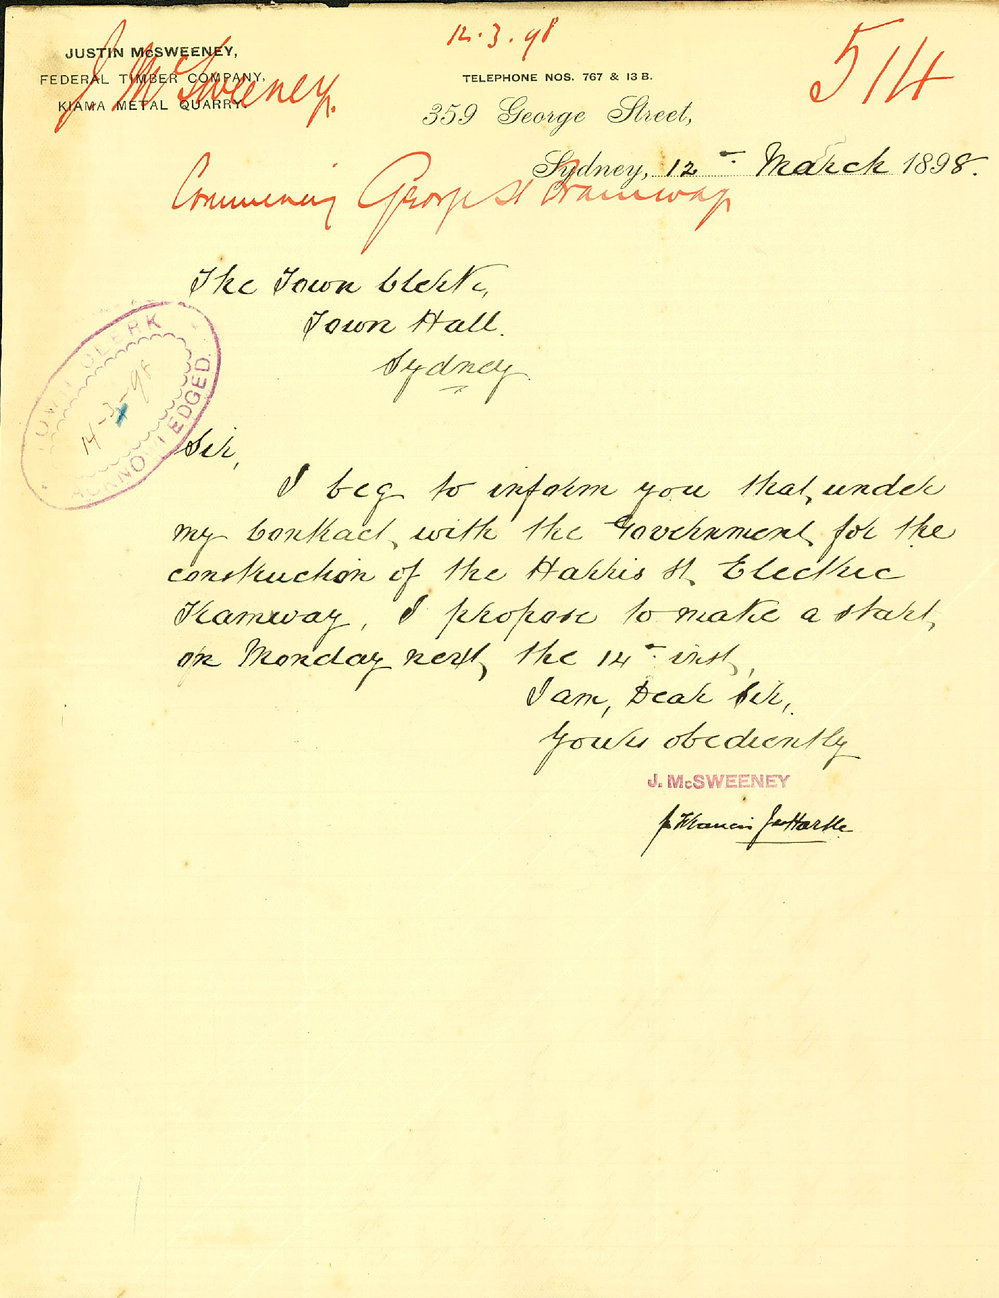 12.3.98
514
JUSTIN McSWEENEY,
FEDERAL TIMBER COMPANY,
KIAMA METAL QUARRY.
J McSweeney.
TELEPHONE NOS. 767 & 13 B.
359 George Street,
Sydney, 12th March 1898.
Commencing George St Tramway
The Town Clerk,
Town Hall.
Sydney.
TOWN CLERK
14-3-98
ACKNOWLEDGED.
Sir,
I beg to inform you that, under
my Contract, with the Government, for the
construction of the Harris St. Electric
Tramway, I propose to make a start,
on Monday next, the 14th inst,
I am, Dear Sir,
Yours obediently
J. McSWEENEY
p Francis